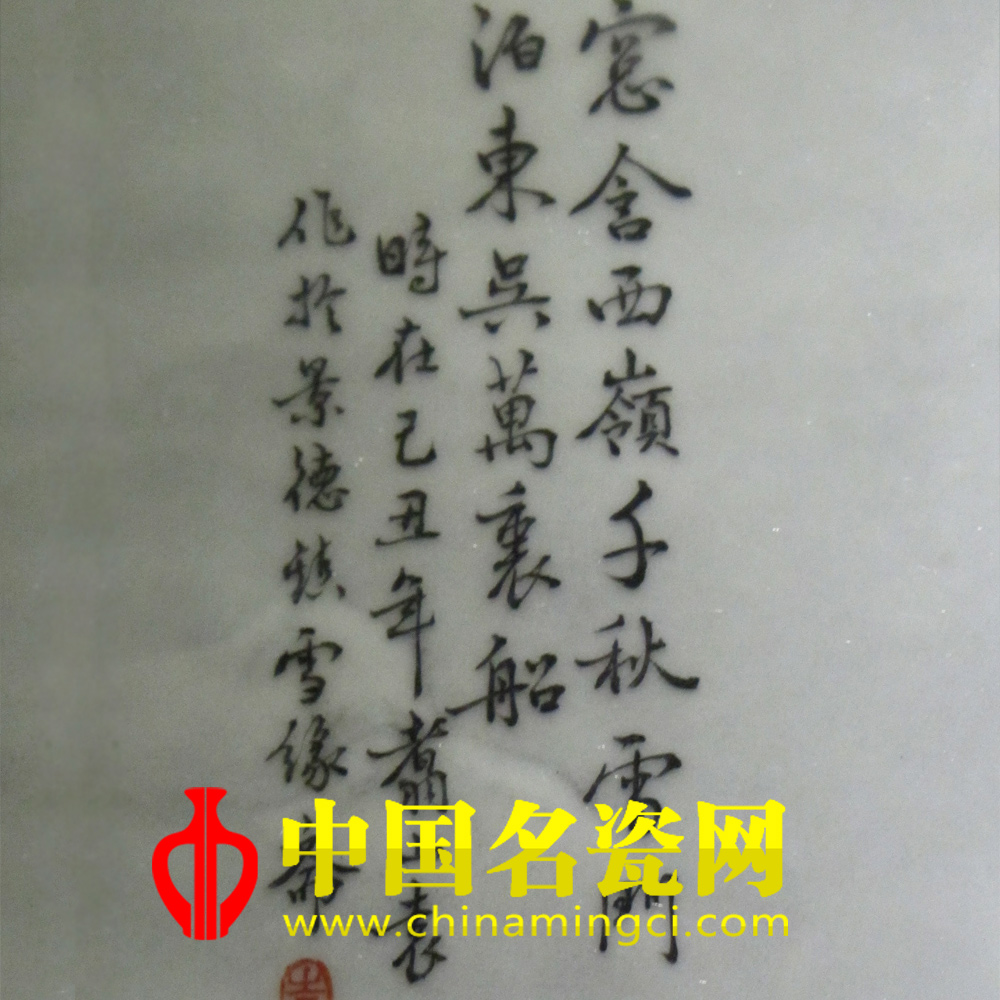 窓含西嶺千秋雪門
泊東吳萬裏船
時在己丑年
作於景德鎮雪緣齋
中国名瓷网
www.chinamingci.com